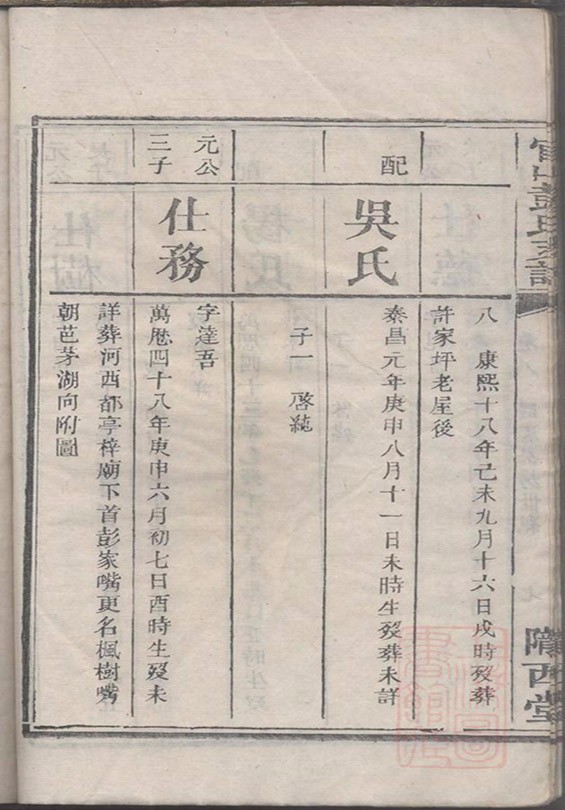 彭氏支譜
隴西堂
八 康熙十八年己未九月十六日戌時歿葬
許家坪老屋後
配
吳氏
泰昌元年庚申八月十一日未時生歿葬未詳
子一 啓統
元公
三子
仕務
字達吾
萬厯四十八年庚申六月初七日酉時生歿未
詳葬河西都亭梓廟下首彭家嘴更名楓樹嘴
朝芭茅湖向附圖